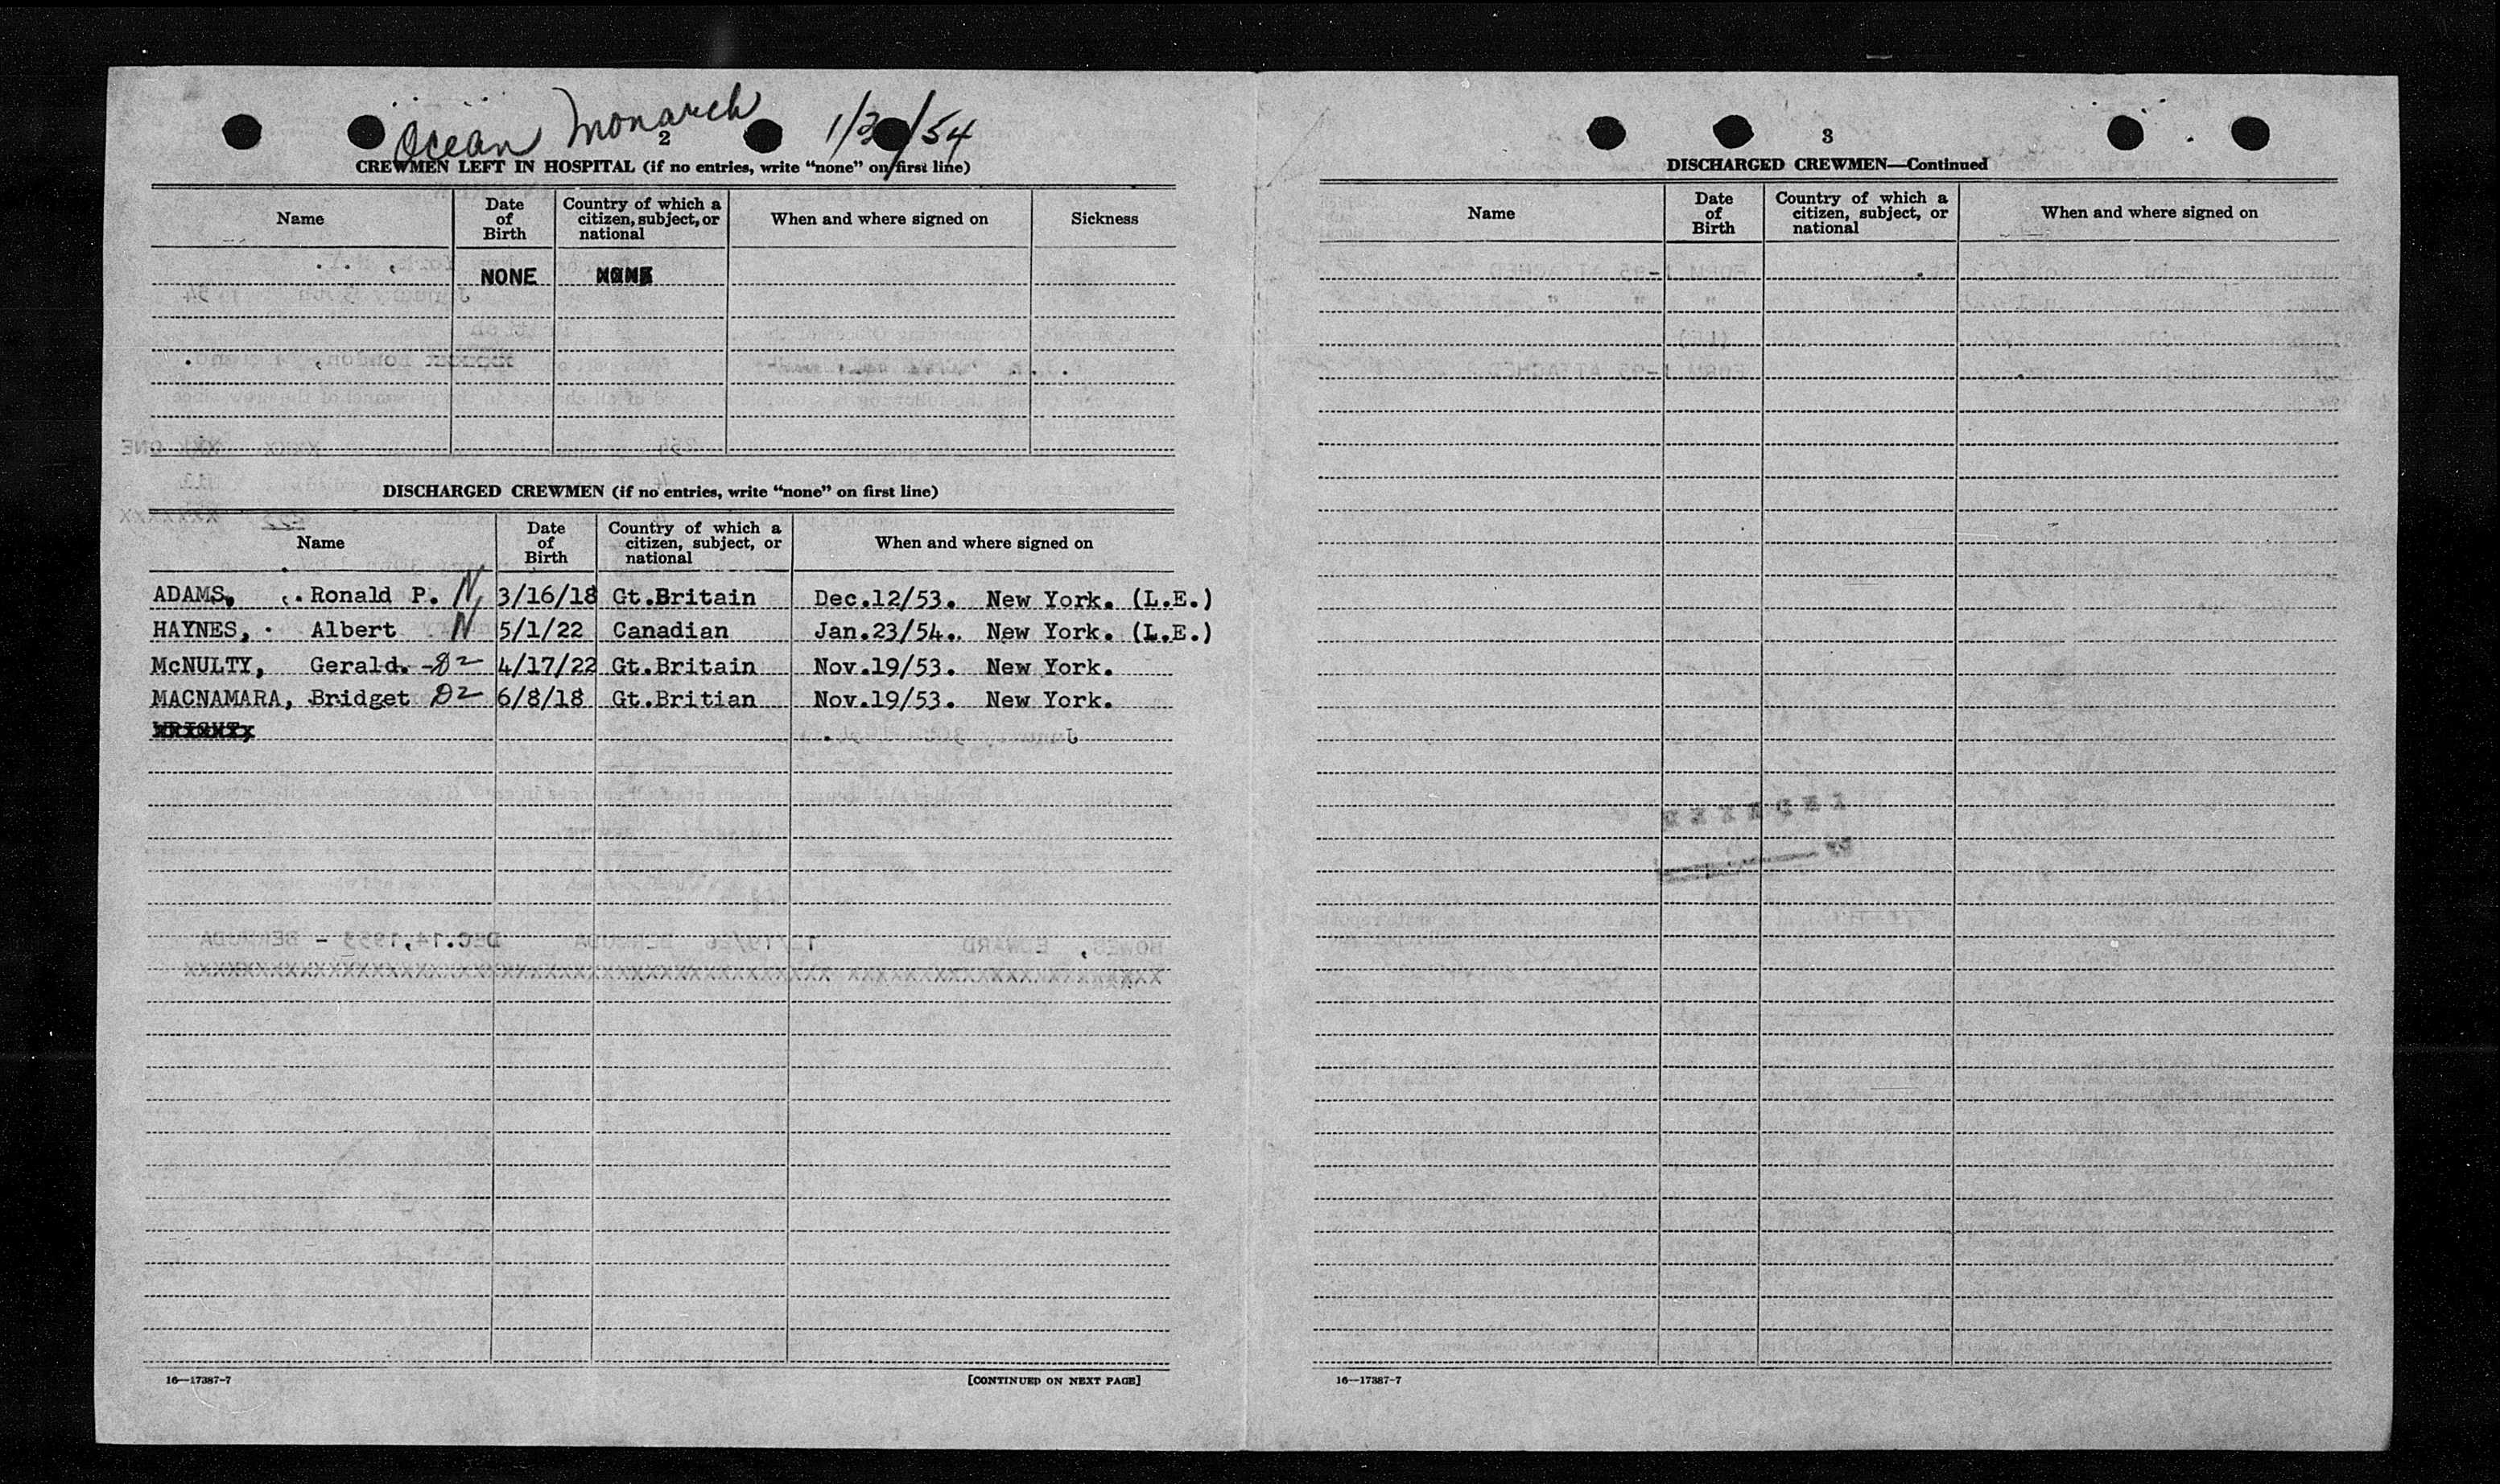 Ocean Monarch
2
CREWMEN LEFT IN HOSPITAL (if no entries, write "none" on first line)
Name Date of Birth Country of which a citizen, subject, or national When and where signed on Sickness
NONE NONE
DISCHARGED CREWMEN (if no entries, write "none" on first line)
Name Date of Birth Country of which a citizen, subject, or national When and where signed on
ADAMS, Ronald P. N 3/16/18 Gt.Britain Dec.12/53. New York. (L.E.)
HAYNES, Albert N 5/1/22 Canadian Jan.23/54. New York. (L.E.)
McNULTY, Gerald. -D2 4/17/22 Gt.Britain Nov.19/53. New York.
MACNAMARA, Bridget D2 6/8/18 Gt.Britian Nov.19/53. New York.
WRIGHT,
16—17387-7 [CONTINUED ON NEXT PAGE]
3
DISCHARGED CREWMEN—Continued
Name Date of Birth Country of which a citizen, subject, or national When and where signed on
16—17387-7